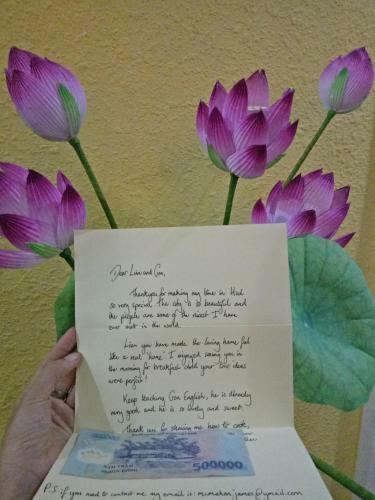 Dear Lien and Con,
Thankyou for making my time in Hué
so very special. The city is so beautiful and
the people are some of the nicest I have
ever met in the world.
Lien you have made the living home feel
like a real 'home' I enjoyed seeing you in
the morning for breakfast and your tour ideas
were perfect!
Keep teaching Con English, he is already
very good and he is so lively and sweet.
Thank you for showing me how to cook,
NĂM TRĂM
NGHÌN ĐỒNG
500000
P.S. if you need to contact me my email is: mcmahon_james@ymail.com